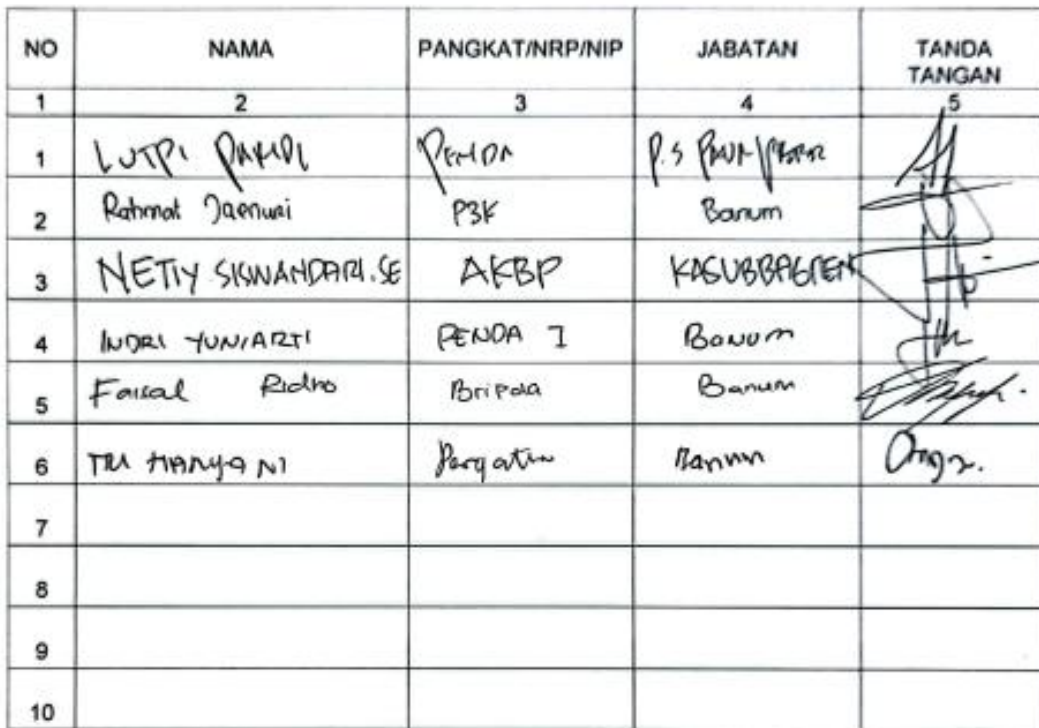 NO NAMA PANGKAT/NRP/NIP JABATAN TANDA TANGAN
1 2 3 4 5
1 LUTPI PENDA P.S
2 Rahmat Jaenuri P3K Banum
3 NETTY SISWANDARI.SE AKBP KASUBBAGREN
4 INDRI YUNIARTI PENDA I Banum
5 Faisal Ridho Bripda Banum
6 TRI HARYANI Banum
7
8
9
10